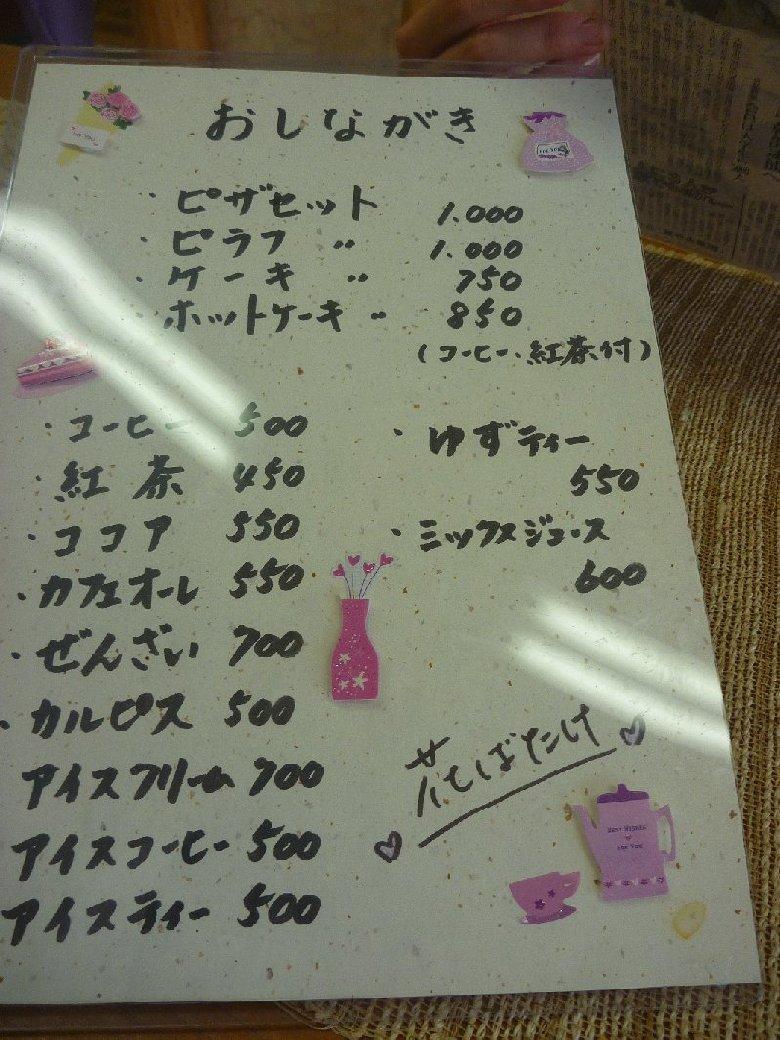 おしながき
・ピザセット 1.000
・ピラフ 〃 1.000
・ケーキ 〃 750
・ホットケーキ 〃 850
(コーヒー、紅茶付)
・コーヒー 500
・紅茶 450
・ココア 550
・カフェオーレ 550
・ぜんざい 700
・カルピス 500
アイスクリーム 700
アイスコーヒー 500
アイスティー 500
・ゆずティー
550
・ミックスジュース
600
花ばたけ
BEST WISHES
FOR YOU